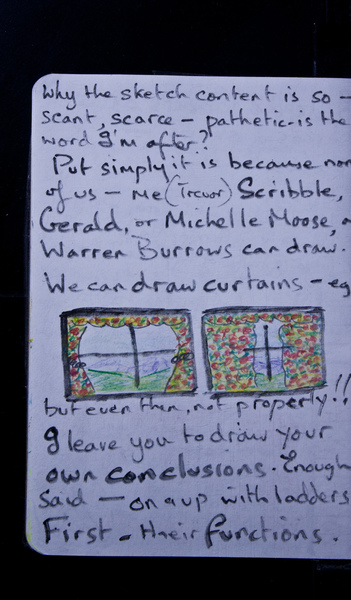 Why the sketch content is so -
scant, scarce - pathetic - is the
word I'm after?
Put simply it is because non
of us - me (Trevor) Scribble,
Gerald, or Michelle Moose, a
Warren Burrows can draw.
We can draw curtains - eg
but even then, not properly!!
I leave you to draw your
own conclusions. Enough
said - on a up with ladders
First - their functions.